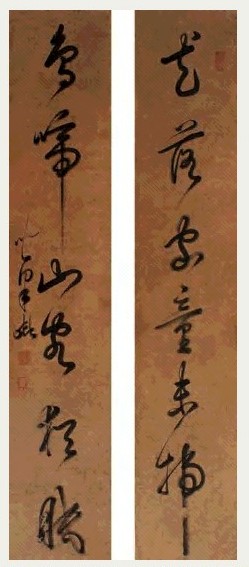 花落家童未掃
鳥啼山客猶眠